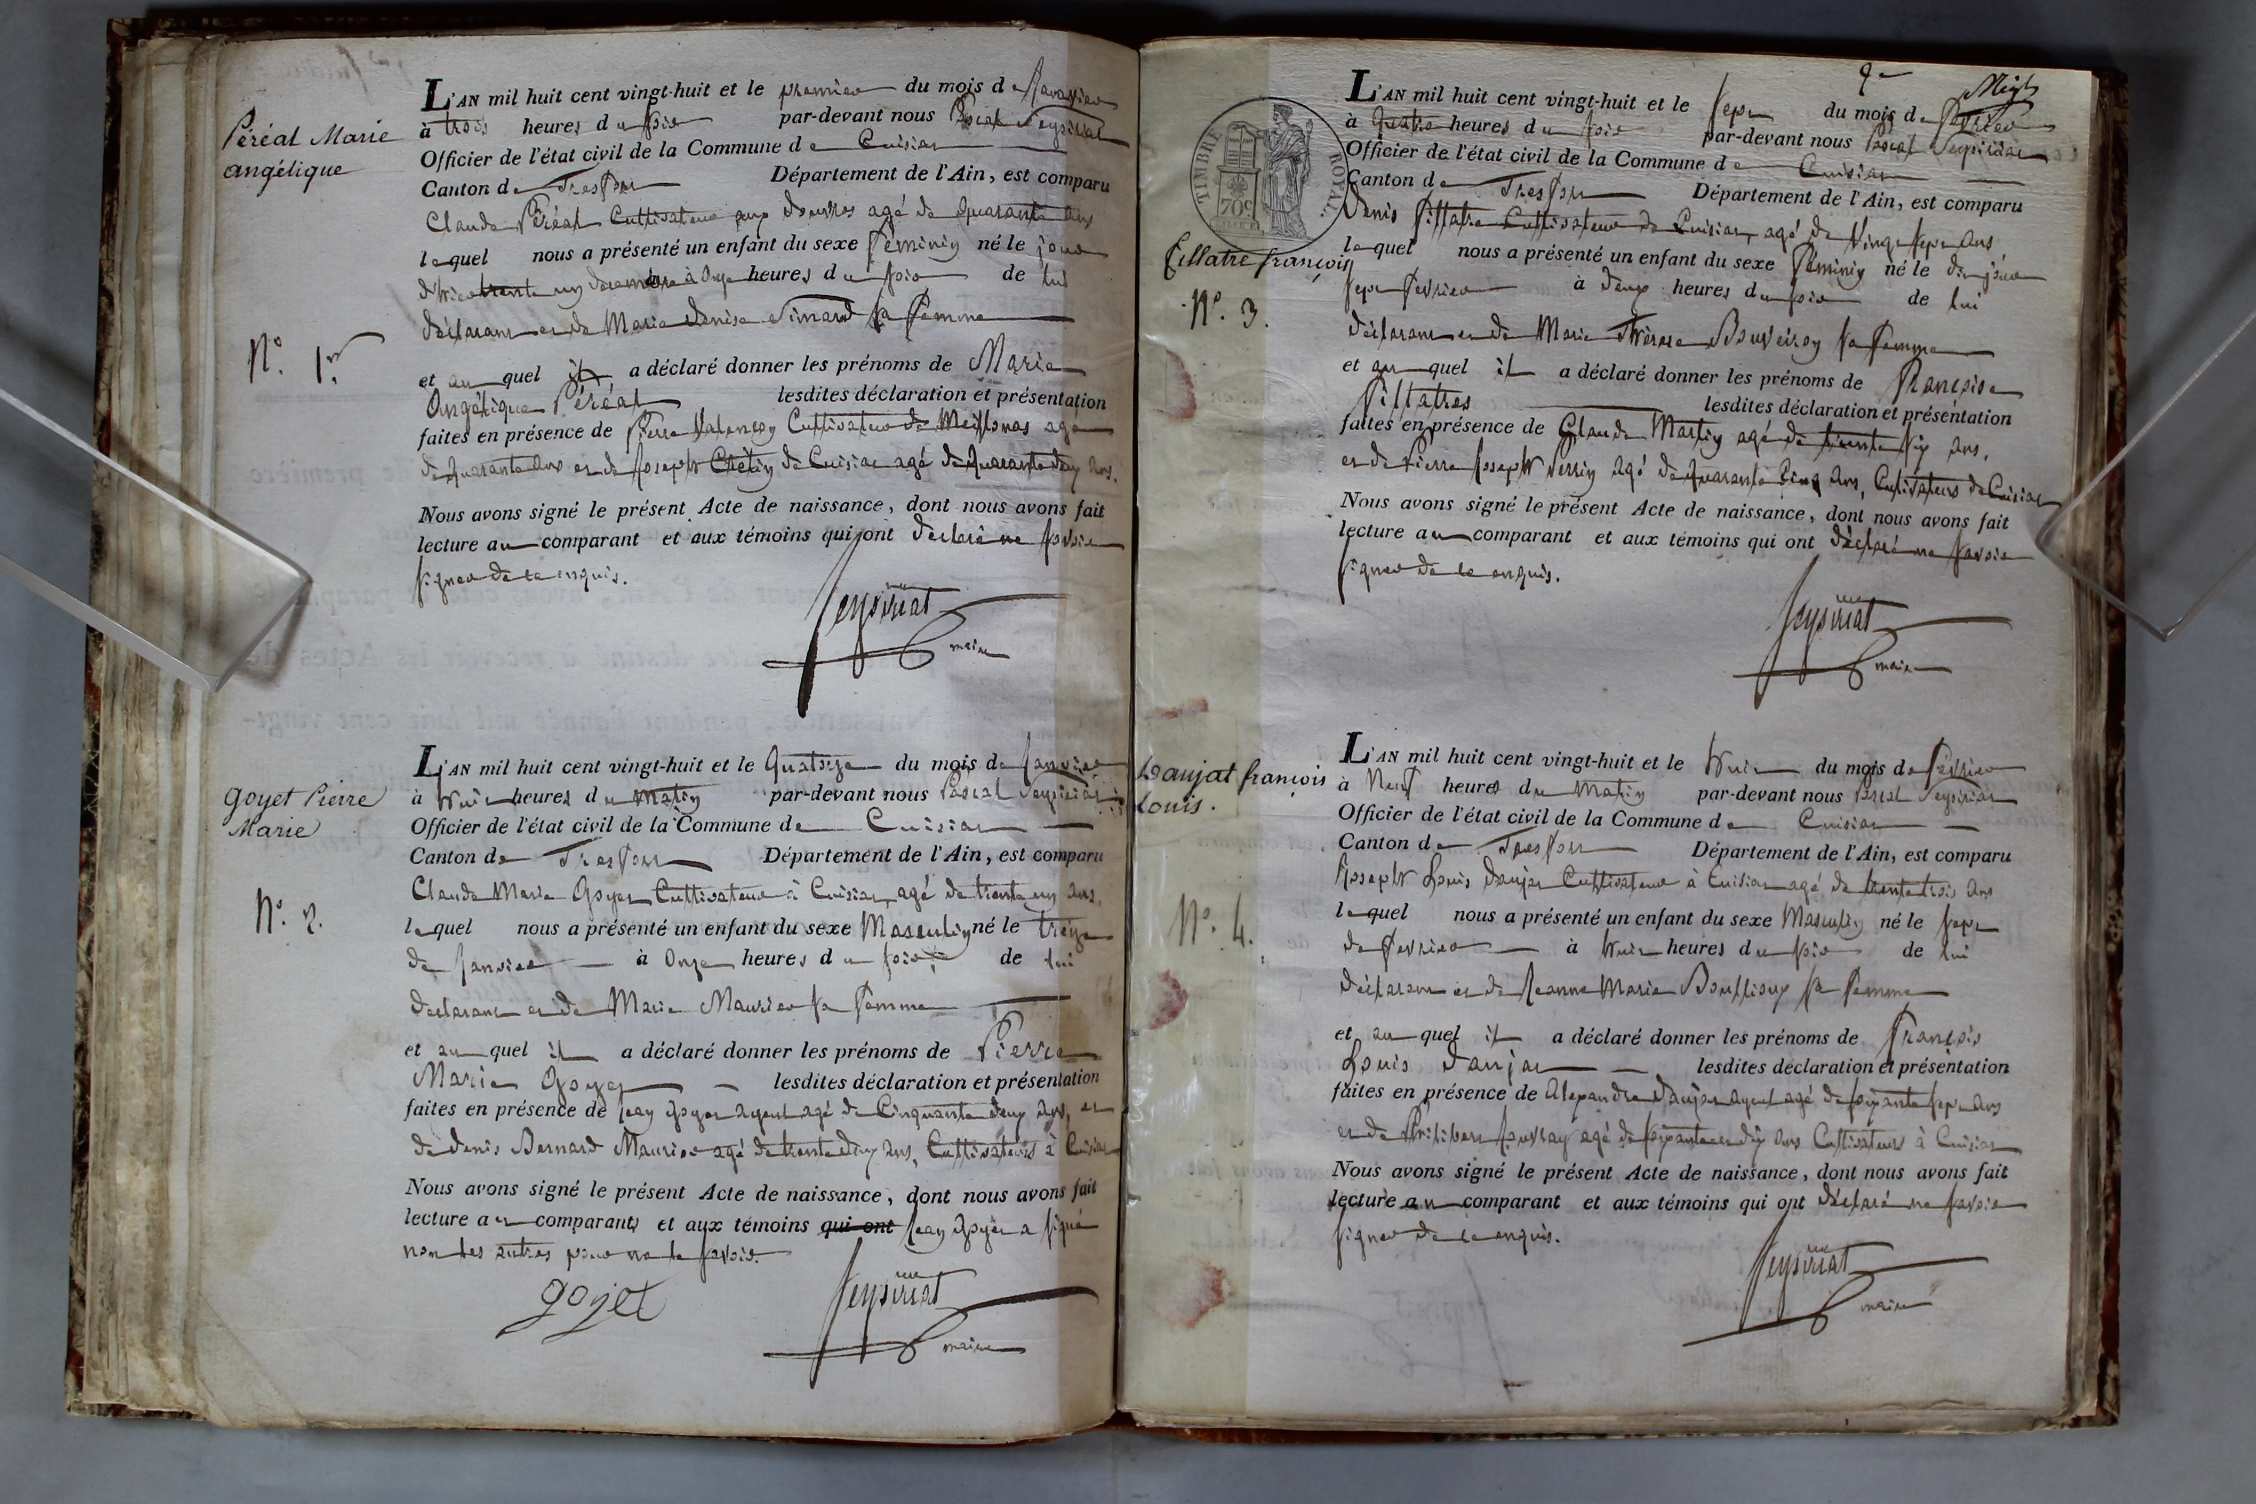 Péréal Marie
angélique
N.° 1.er
L'AN mil huit cent vingt-huit et le premier du mois de Janvier
à trois heures du soir par-devant nous Pascal Seysiriat
Officier de l'état civil de la Commune de Cuisiat
Canton de Treffort Département de l'Ain, est comparu
Claude Péréal Cultivateur aux douvres agé de quarante ans
lequel nous a présenté un enfant du sexe féminin né le jour
d'hier trente un décembre à onze heures du soir de lui
déclarant et de Marie denise Simard sa femme
et auquel il a déclaré donner les prénoms de Marie
Angélique Péréal lesdites déclaration et présentation
faites en présence de Pierre Cultivateur de Meillonas agé
de quarante ans et de Joseph Chétin de Cuisiat agé de quarante deux ans.
Nous avons signé le présent Acte de naissance, dont nous avons fait
lecture au comparant et aux témoins qui ont déclaré ne savoir
signer de ce enquis.
Seysiriat
maire
goyet Pierre
Marie
N.° 2.
L'AN mil huit cent vingt-huit et le quatorze du mois de Janvier
à huit heures du matin par-devant nous Pascal Seysiriat
Officier de l'état civil de la Commune de Cuisiat
Canton de Treffort Département de l'Ain, est comparu
Claude Marie Goyet Cultivateur à Cuisiat, agé de trente un ans,
lequel nous a présenté un enfant du sexe Masculin né le treize
de Janvier à onze heures du soir de lui
déclarant et de Marie Maurier sa femme
et auquel il a déclaré donner les prénoms de Pierre
Marie Goyet lesdites déclaration et présentation
faites en présence de Jean Goyet ayeul agé de Cinquante deux ans, et
de denis Bernard Maurier agé de trente deux ans, Cultivateurs à Cuisiat
Nous avons signé le présent Acte de naissance, dont nous avons fait
lecture au comparants et aux témoins qui ont Jean Goyet a signé
non les autres pour ne le savoir.
goyet
Seysiriat
maire
2e
TIMBRE ROYAL
70c
fillatre françois
N.° 3.
L'AN mil huit cent vingt-huit et le sept du mois de février
à quatre heures du soir par-devant nous Pascal Seysiriat
Officier de l'état civil de la Commune de Cuisiat
Canton de Treffort Département de l'Ain, est comparu
denis fillatre Cultivateur de Cuisiat, agé de vingt sept ans
lequel nous a présenté un enfant du sexe féminin né le du jour
sept février à deux heures du soir de lui
déclarant et de Marie Thérèse Bouveiron sa femme
et auquel il a déclaré donner les prénoms de françoise
fillatres lesdites déclaration et présentation
faites en présence de Claude Martin agé de trente six ans,
et de Pierre Joseph Perrin agé de quarante cinq ans, Cultivateurs de Cuisiat
Nous avons signé le présent Acte de naissance, dont nous avons fait
lecture au comparant et aux témoins qui ont déclaré ne savoir
signer de ce enquis.
Seysiriat
maire
Daujat françois
Louis.
N.° 4.
L'AN mil huit cent vingt-huit et le huit du mois de février
à Neuf heures du matin par-devant nous Pascal Seysiriat
Officier de l'état civil de la Commune de Cuisiat
Canton de Treffort Département de l'Ain, est comparu
Joseph Louis daujat Cultivateur à Cuisiat agé de trente trois ans
lequel nous a présenté un enfant du sexe Masculin né le sept
de février à huit heures du soir de lui
déclarant et de Jeanne Marie Bouilloux sa femme
et auquel il a déclaré donner les prénoms de françois
Louis daujat lesdites déclaration et présentation
faites en présence de Alexandre Daujat ayeul agé de soixante sept ans
et de Philibert agé de soixante et dix ans Cultivateurs à Cuisiat
Nous avons signé le présent Acte de naissance, dont nous avons fait
lecture au comparant et aux témoins qui ont déclaré ne savoir
signer de ce enquis.
Seysiriat
maire